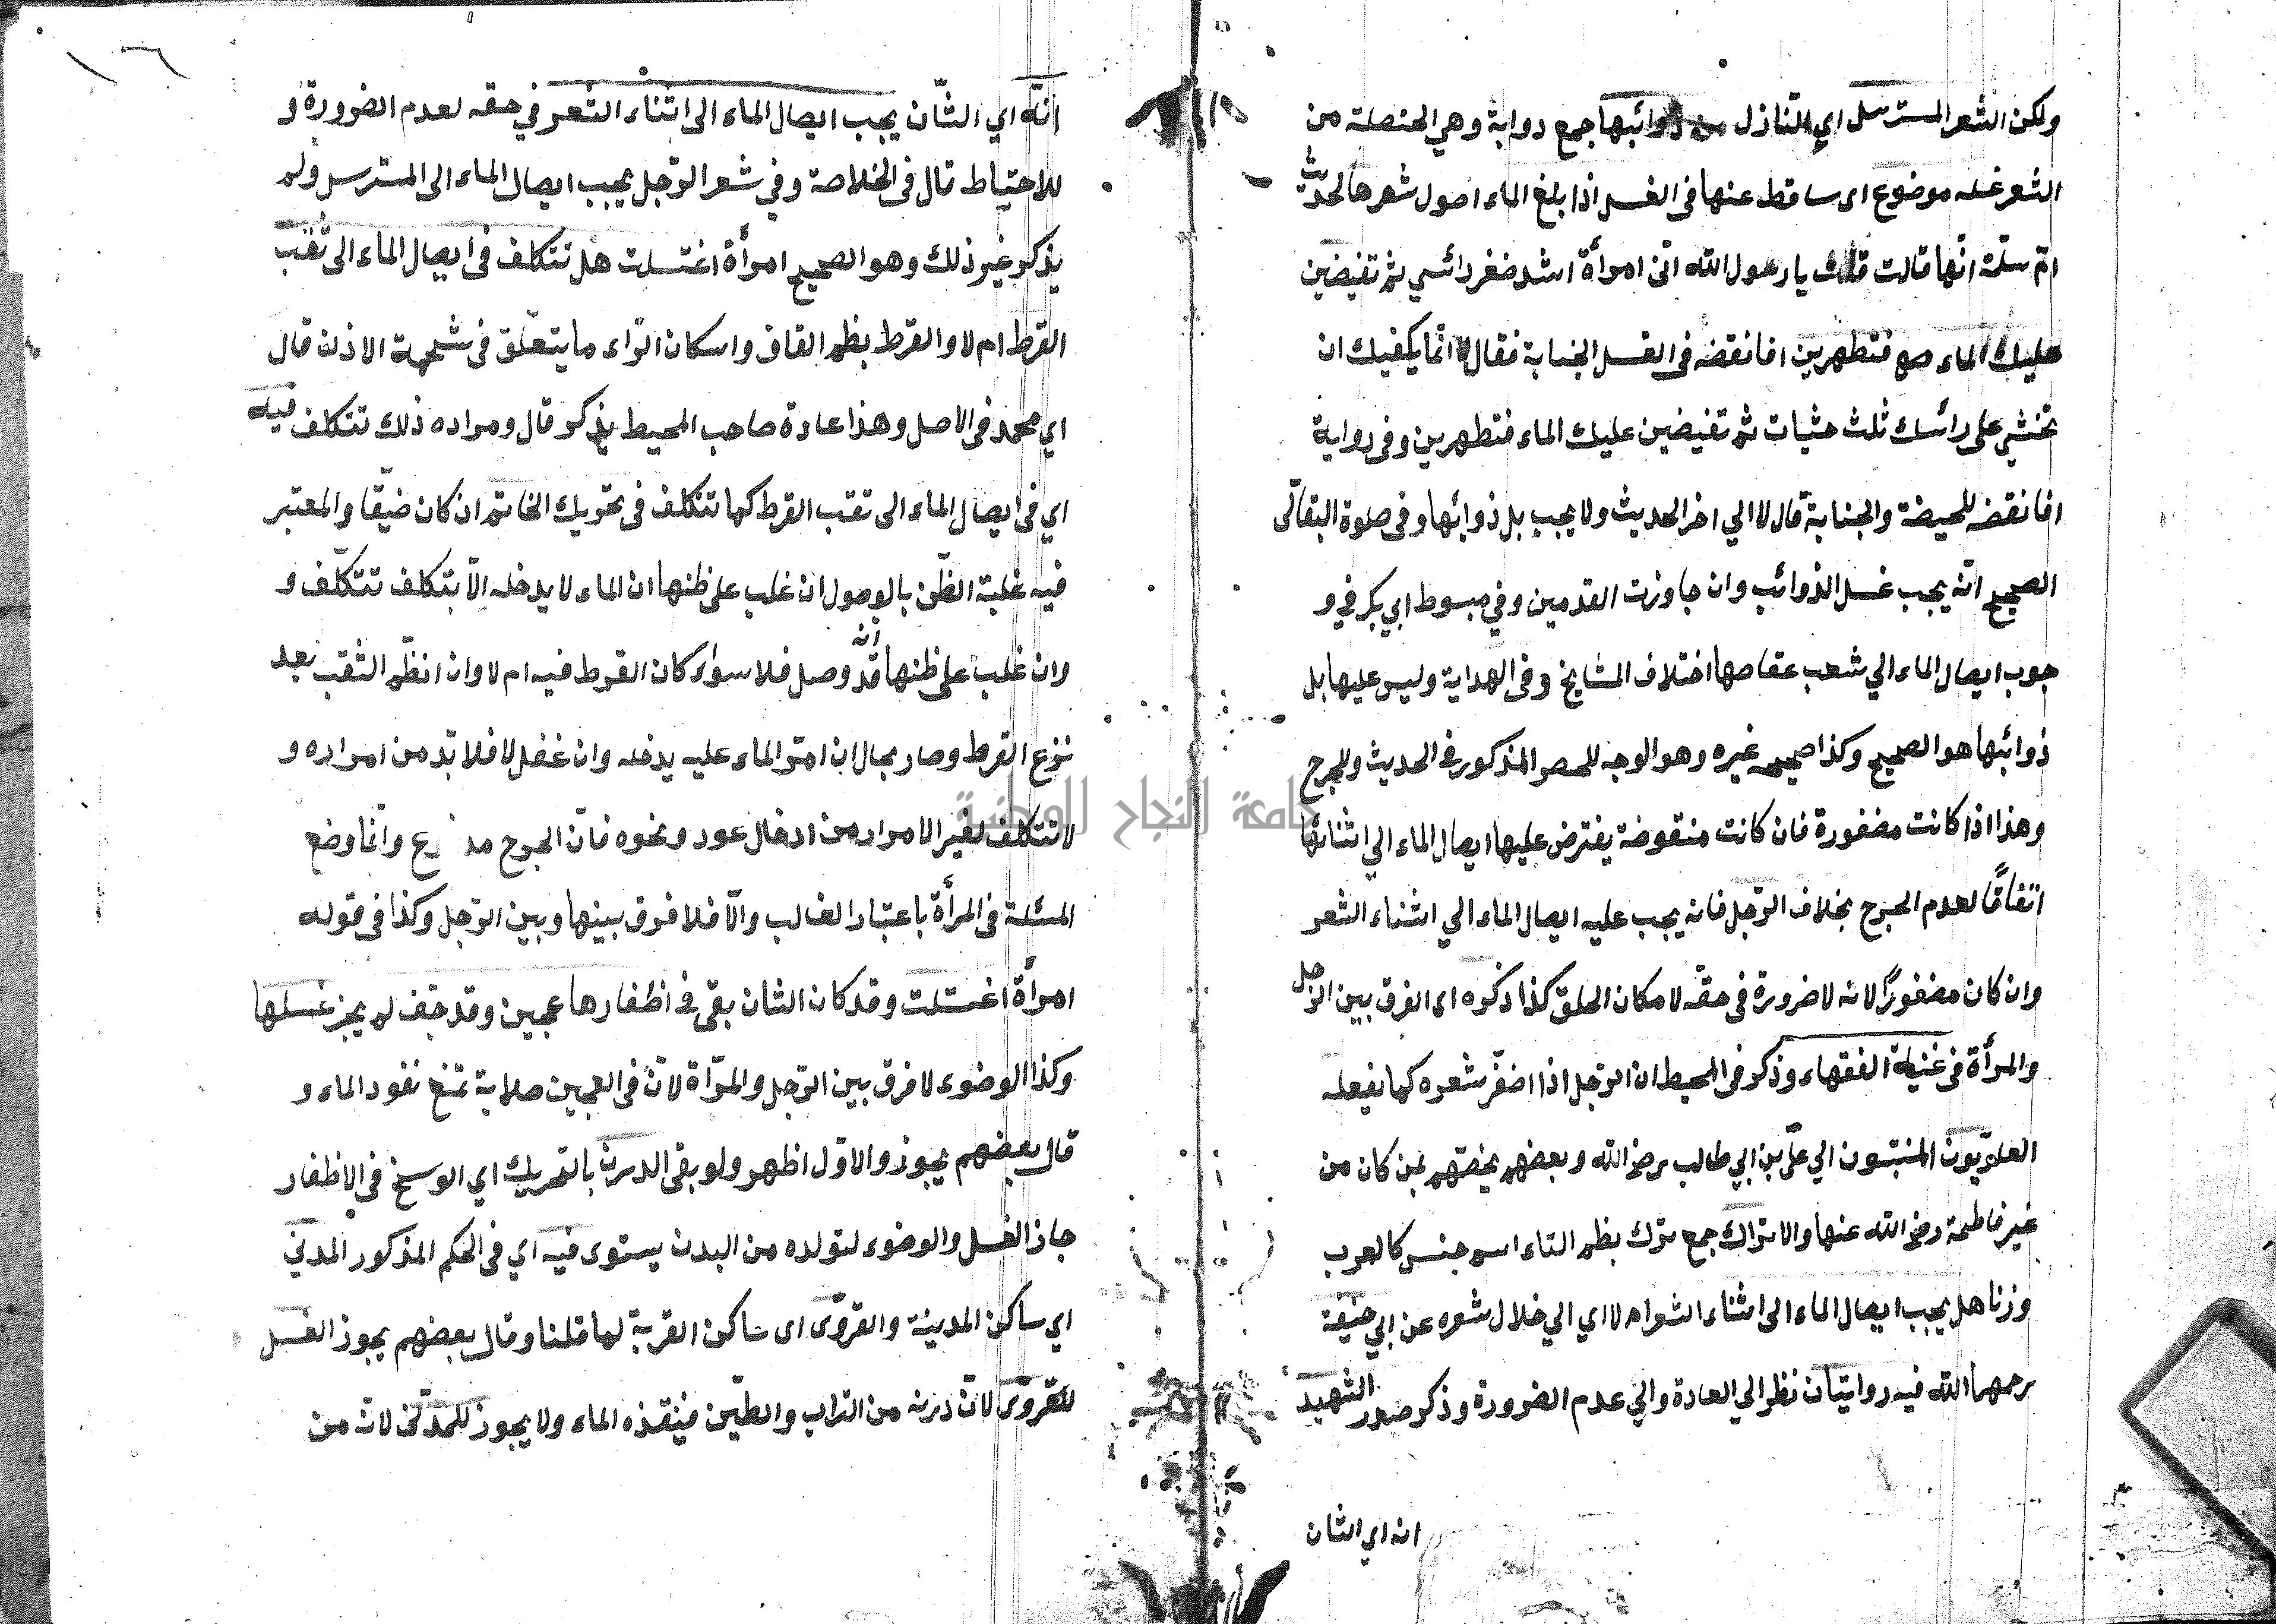 ولكن الشعر المسترسل اي النازل من ذوائبها جمع دوابة وهي الخصلة من
الشعر غسله موضوع اى ساقط عنها فى الغسل اذا بلغ الماء اصول شعرها لحديث
امّ سلمة انّها قالت قلت يا رسول الله انّى امرأة اشد ضفر رائسي ثم تفيضين
عليك الماء فتطهرين افانقضه فى الغسل الجنابة فقال لا انّما يكفيك ان
تحثي على رائسك ثلث حثيات ثم تفيضين عليك الماء فتطهرين وفى رواية
افانقضه للحيضة والجنابة قال لا الي اخر الحديث ولا يجب بل ذوائبها وفى صلوة البقالّى
الصحيح انّه يجب غسل الذوائب وان جاوزت القدمين وفي مبسوط ابي بكر في و
جوب ايصال الماء الي شعب عقاصها اختلاف المشايخ وفى الهداية وليس عليها بل
ذوائبها هو الصحيح وكذا صححه غيره وهو الوجه للحصر المذكور فى الحديث وللحرج
وهذا اذا كانت مضفورة فان كانت منقوضة يفترض عليها ايصال الماء الي اثنائها
اتفاقًا لعدم الحرج بخلاف الرّجل فانه يجب عليه ايصال الماء الي اثناء الشعر
وان كان مضفورًا لانه لا ضرورة فى حقّه لامكان الحلق كذا ذكره اى الفرق بين الرّجل
والمرأة فى غنية الفقهاء وذكر فى المحيط ان الرّجل اذا اضفّر شعره كما يفعله
العلويّون المنتسبون الي علىّ بن ابي طالب رضى الله وبعضهم يخصّهم بمن كان من
غير فاطمة رضى الله عنها والاتراك جمع ترك بظم التاء اسم جنس كالعرب
وزنا هل يجب ايصال الماء الى اثناء الشعر ام لا اي الي خلال شعره عن ابي حنيفة
رحمهما الله فيه روايتان نظر الي العادة والي عدم الضرورة وذكر صدر الشهيد
انه اي الشان
١٦
انّه اي الشّان يجب ايصال الماء الى اثناء الشعر في حقه لعدم الضرورة و
للاحتياط قال فى الخلاصة وفي شعر الرّجل يجب ايصال الماء الى المسترسل ولم
يذكر غير ذلك وهو الصحيح امرأة اغتسلت هل تتكلف فى ايصال الماء الى ثقب
القرط ام لا والقرط بظم القاف واسكان الرّاء ما يتعلّق فى شحمة الاذن قال
اي محمد فى الاصل وهذا عادة صاحب المحيط يذكر قال ومراده ذلك تتكلف فيه
اي فى ايصال الماء الى ثقب القرط كما تتكلف فى تحريك الخاتم ان كان ضيّقا والمعتبر
فيه غلبة الظّن بالوصول ان غلب على ظنها ان الماء لا يدخله الاّ بتكلف تتكلّف و
وان غلب على ظنها أنّه قد وصل فلا سواء كان القرط فيه ام لا وان انظّم الثقب بعد
نزع القرط وصار بحال ان امرّ الماء عليه يدخله وان غفل لا فلا بّد من امراره و
لا تتكلف لغير الامرار من ادخال عود ونحوه فانّ الحرج وانّما وضع
المسئلة فى المرأة باعتبار الغالب والاّ فلا فرق بينها وبين الرّجل وكذا فى قوله
امرأة اغتسلت وقد كان الشان بقى فى اظفارها عجين وقد جفّ لم يجز غسلها
وكذا الوضوء لا فرق بين الرّجل والمرأة لانّ فى العجين صلابة تمنع نفود الماء و
قال بعضهم يجوز والاوّل اظهر ولو بقى الدرن بالتحريك اي الوسخ فى الاظفار
جاز الغسل والوضوء لتولده من البدن يستوى فيه اي فى الحكم المذكور المدنيّ
اي ساكن المدينة والقروّى اى ساكن القرية لما قلنا وقال بعضهم يجوز الغسل
للقروّى لانّ درنه من التراب والطّين فينقذه الماء ولا يجوز للمدنّى لانّه من
جامعة النجاح الوطنية